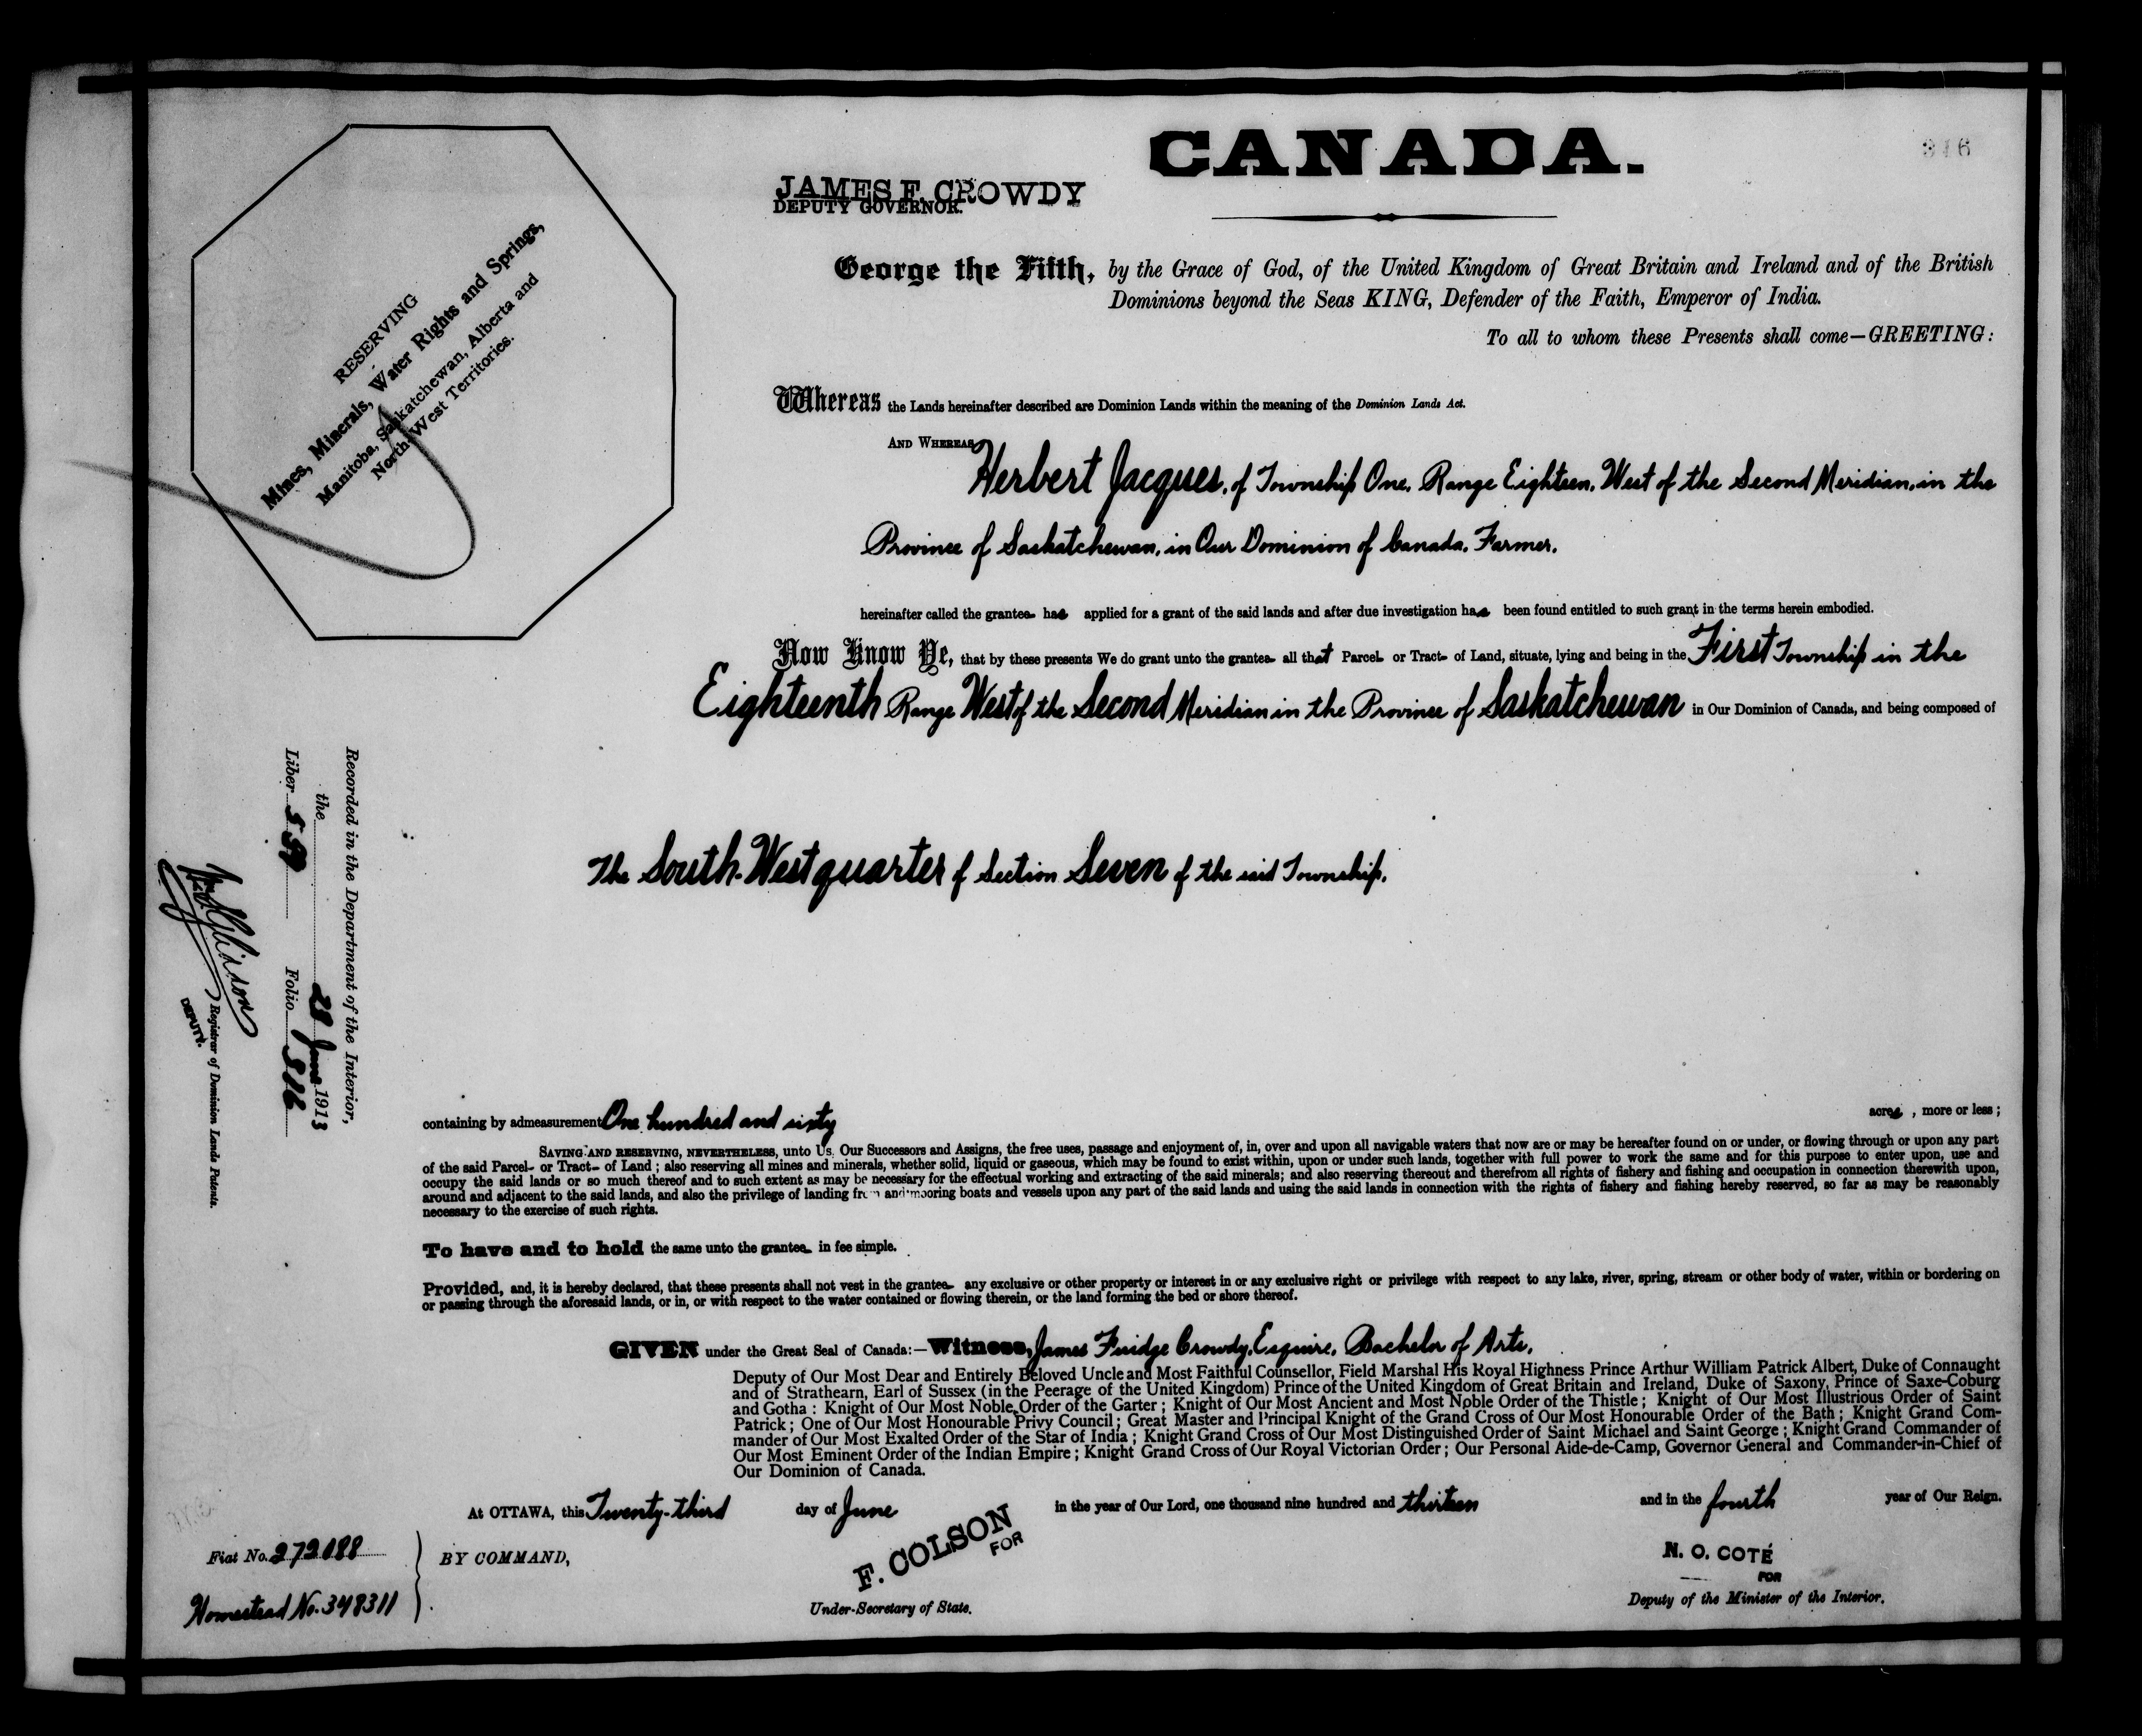 CANADA.
316
JAMES F. CROWDY
DEPUTY GOVERNOR.
George the Fifth, by the Grace of God, of the United Kingdom of Great Britain and Ireland and of the British
Dominions beyond the Seas KING, Defender of the Faith, Emperor of India.
To all to whom these Presents shall come—GREETING:
RESERVING
Mines, Minerals, Water Rights and Springs,
Manitoba, Saskatchewan, Alberta and
North West Territories.
Whereas the Lands hereinafter described are Dominion Lands within the meaning of the Dominion Lands Act.
AND WHEREAS
Herbert Jacques, of Township One, Range Eighteen, West of the Second Meridian, in the
Province of Saskatchewan, in Our Dominion of Canada, Farmer,
hereinafter called the grantee has applied for a grant of the said lands and after due investigation has been found entitled to such grant in the terms herein embodied.
Now Know Ye, that by these presents We do grant unto the grantee all that Parcel or Tract of Land, situate, lying and being in the First Township in the
Eighteenth Range West of the Second Meridian in the Province of Saskatchewan in Our Dominion of Canada, and being composed of
The South-West quarter of Section Seven of the said Township,
Recorded in the Department of the Interior,
the 28 June 1913
Liber Folio 316
Registrar of Dominion Lands Patents.
DEPUTY.
containing by admeasurement One hundred and sixty acres, more or less;
SAVING AND RESERVING, NEVERTHELESS, unto Us, Our Successors and Assigns, the free uses, passage and enjoyment of, in, over and upon all navigable waters that now are or may be hereafter found on or under, or flowing through or upon any part
of the said Parcel or Tract of Land; also reserving all mines and minerals, whether solid, liquid or gaseous, which may be found to exist within, upon or under such lands, together with full power to work the same and for this purpose to enter upon, use and
occupy the said lands or so much thereof and to such extent as may be necessary for the effectual working and extracting of the said minerals; and also reserving thereout and therefrom all rights of fishery and fishing and occupation in connection therewith upon,
around and adjacent to the said lands, and also the privilege of landing from and mooring boats and vessels upon any part of the said lands and using the said lands in connection with the rights of fishery and fishing hereby reserved, so far as may be reasonably
necessary to the exercise of such rights.
To have and to hold the same unto the grantee in fee simple.
Provided, and, it is hereby declared, that these presents shall not vest in the grantee any exclusive or other property or interest in or any exclusive right or privilege with respect to any lake, river, spring, stream or other body of water, within or bordering on
or passing through the aforesaid lands, or in, or with respect to the water contained or flowing therein, or the land forming the bed or shore thereof.
GIVEN under the Great Seal of Canada:—Witness, James Fuidge Crowdy, Esquire, Bachelor of Arts,
Deputy of Our Most Dear and Entirely Beloved Uncle and Most Faithful Counsellor, Field Marshal His Royal Highness Prince Arthur William Patrick Albert, Duke of Connaught
and of Strathearn, Earl of Sussex (in the Peerage of the United Kingdom) Prince of the United Kingdom of Great Britain and Ireland, Duke of Saxony, Prince of Saxe-Coburg
and Gotha: Knight of Our Most Noble Order of the Garter; Knight of Our Most Ancient and Most Noble Order of the Thistle; Knight of Our Most Illustrious Order of Saint
Patrick; One of Our Most Honourable Privy Council; Great Master and Principal Knight of the Grand Cross of Our Most Honourable Order of the Bath; Knight Grand Com-
mander of Our Most Exalted Order of the Star of India; Knight Grand Cross of Our Most Distinguished Order of Saint Michael and Saint George; Knight Grand Commander of
Our Most Eminent Order of the Indian Empire; Knight Grand Cross of Our Royal Victorian Order; Our Personal Aide-de-Camp, Governor General and Commander-in-Chief of
Our Dominion of Canada.
At OTTAWA, this Twenty-third day of June in the year of Our Lord, one thousand nine hundred and thirteen and in the fourth year of Our Reign.
Fiat No. 272188
Homestead No. 348311
BY COMMAND,
F. COLSON
FOR
Under-Secretary of State.
N. O. COTÉ
FOR
Deputy of the Minister of the Interior.